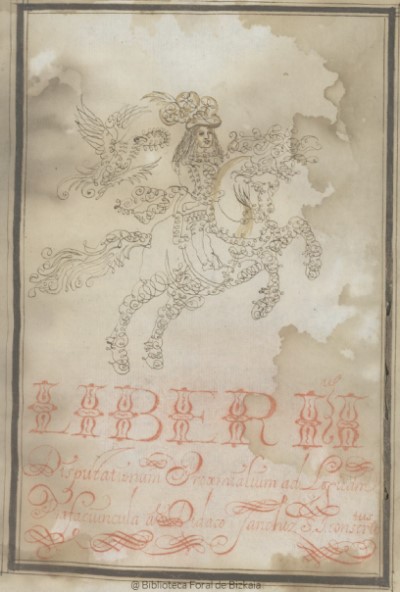 LIBER IN
Disputationum Proemialium ad Logicam
Prefatiuncula a Didaco Sanchez
@ Biblioteca Foral de Bizkaia.